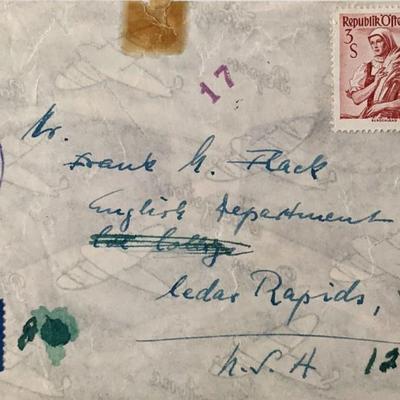 REPUBLIK ÖST
3
S
BURGENLAND
17
Mr.
Frank G. Flack
English Department
Coe College
Cedar Rapids,
U.S.A
12